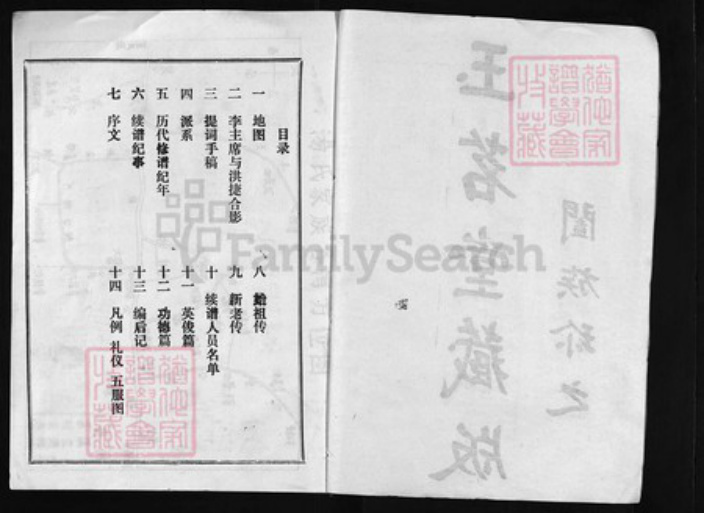 目录
一 地图
二 李主席与洪捷合影
三 提词手稿
四 派系
五 历代修谱纪年
六 续谱纪事
七 序文
八 始祖传
九 新老传
十 续谱人员名单
十一 英俊篇
十二 功德篇
十三 编后记
十四 凡例 礼仪 五服图
阖族珍之
玉茗堂藏版
FamilySearch